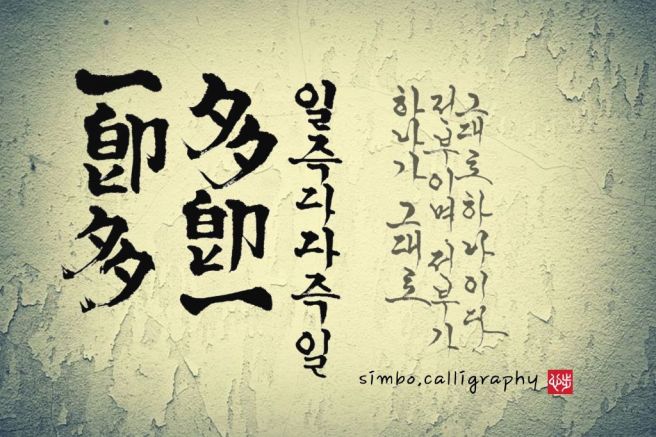 一卽多
多卽一
일즉다다즉일
하나가 그대로
전부이며 전부가
그대로 하나이다.
simbo.calligraphy